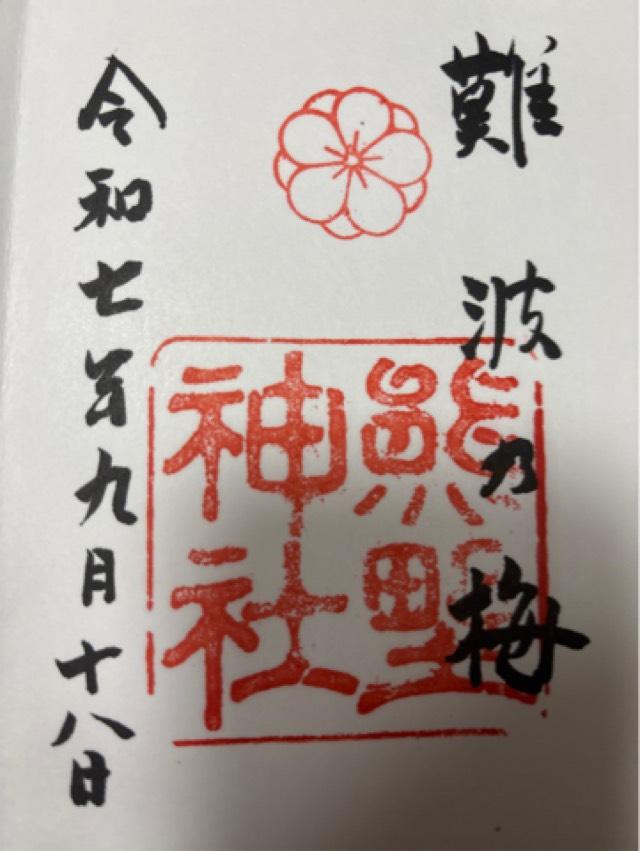 難波乃梅
熊野
神社
令和七年九月十八日